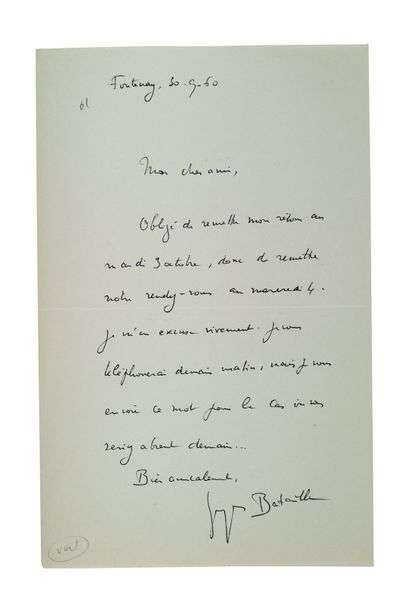 Fontenay, 30-9-60
61
Mon cher ami,
Obligé de remettre mon retour au
mardi 3 octobre, donc de remettre
notre rendez-vous au mercredi 4.
Je m'en excuse vivement. Je vous
téléphonerai demain matin, mais je vous
envoie ce mot pour le cas où vous
seriez absent demain...
Bien amicalement,
Georges Bataille
vert